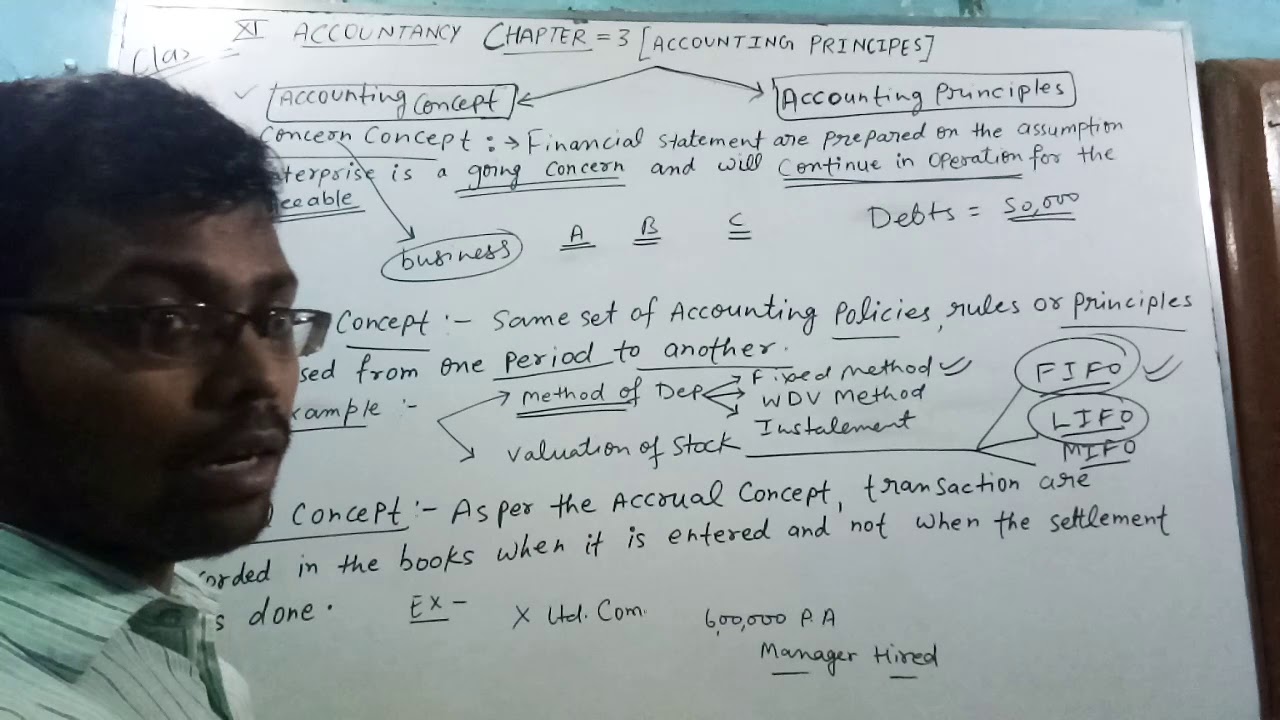 Clas XI ACCOUNTANCY CHAPTER = 3 [ACCOUNTING PRINCIPES]
Accounting Concept Accounting Principles
Concern Concept :→ Financial statement are prepared on the assumption
terprise is a going concern and will continue in operation for the
eeable
business A B C Debts = 50,000
Concept :- Same set of Accounting Policies, rules or principles
sed from one period to another.
xample :- method of Dep Fixed method FIFO
WDV Method
Instalement LIFO
valuation of Stock MIFO
Concept :- As per the Accrual Concept, transaction are
orded in the books when it is entered and not when the settlement
s done. EX - X Ltd. Com. 6,00,000 P.A
Manager Hired